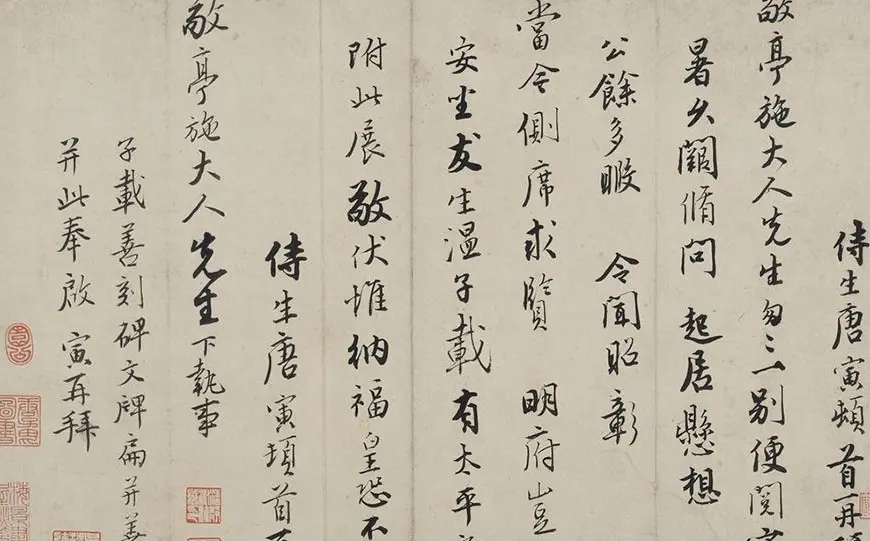 侍生唐寅頓首再
敬亭施大人先生匆匆一別便閱寒
暑久闊脩問 起居懸想
公餘多暇 令聞昭彰
當今側席求賢 明府豈
安坐友生溫子載有太平
附此展敬伏惟納福皇恐不
侍生唐寅頓首
敬亭施大人先生下執事
子載善刻碑文碑扁并善
并此奉啟 寅再拜